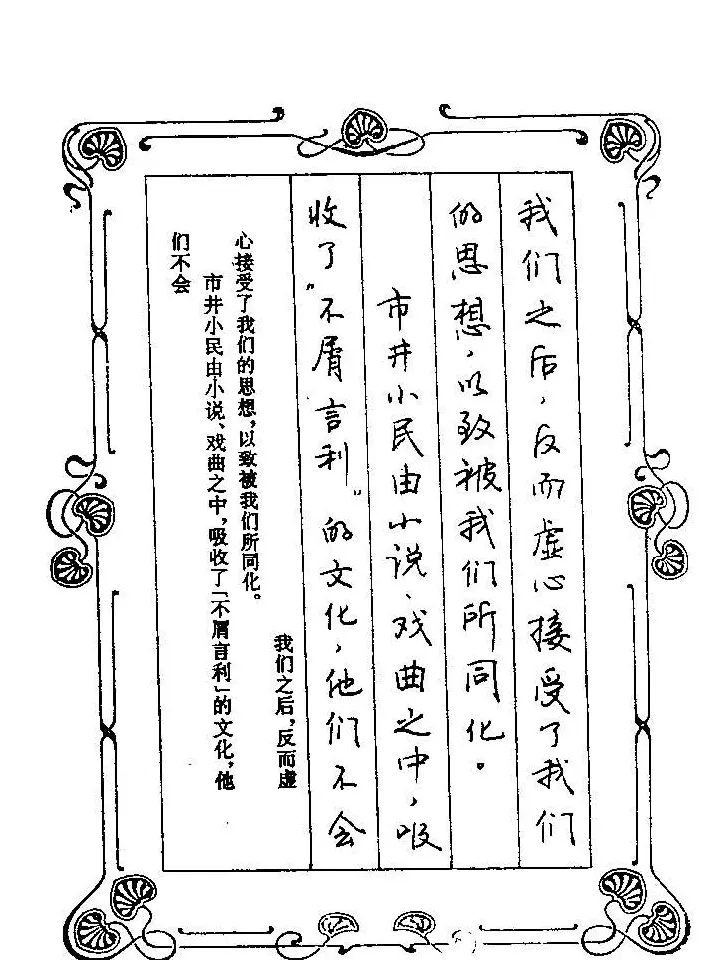 我们之后，反而虚心接受了我们
的思想，以致被我们所同化。
市井小民由小说、戏曲之中，吸
收了“不屑言利”的文化，他们不会
我们之后，反而虚
心接受了我们的思想，以致被我们所同化。
市井小民由小说、戏曲之中，吸收了「不屑言利」的文化，他
们不会